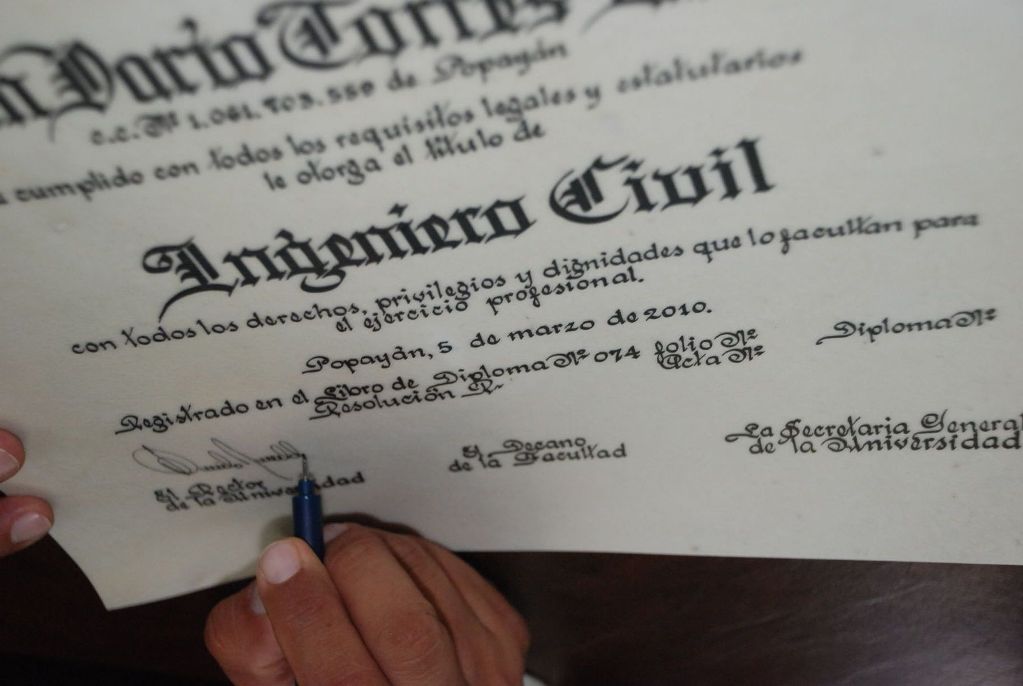 Darío Torres
c.c. Nº de Popayán
cumplido con todos los requisitos legales y estatutarios
le otorga el título de
Ingeniero Civil
con todos los derechos, privilegios y dignidades que lo facultan para
el ejercicio profesional.
Popayán, 5 de marzo de 2010.
Registrado en el Libro de Diploma Nº 074 folio Nº Diploma Nº
Resolución R- Acta Nº
El Rector
de la Universidad
El Decano
de la Facultad
La Secretaria General
de la Universidad